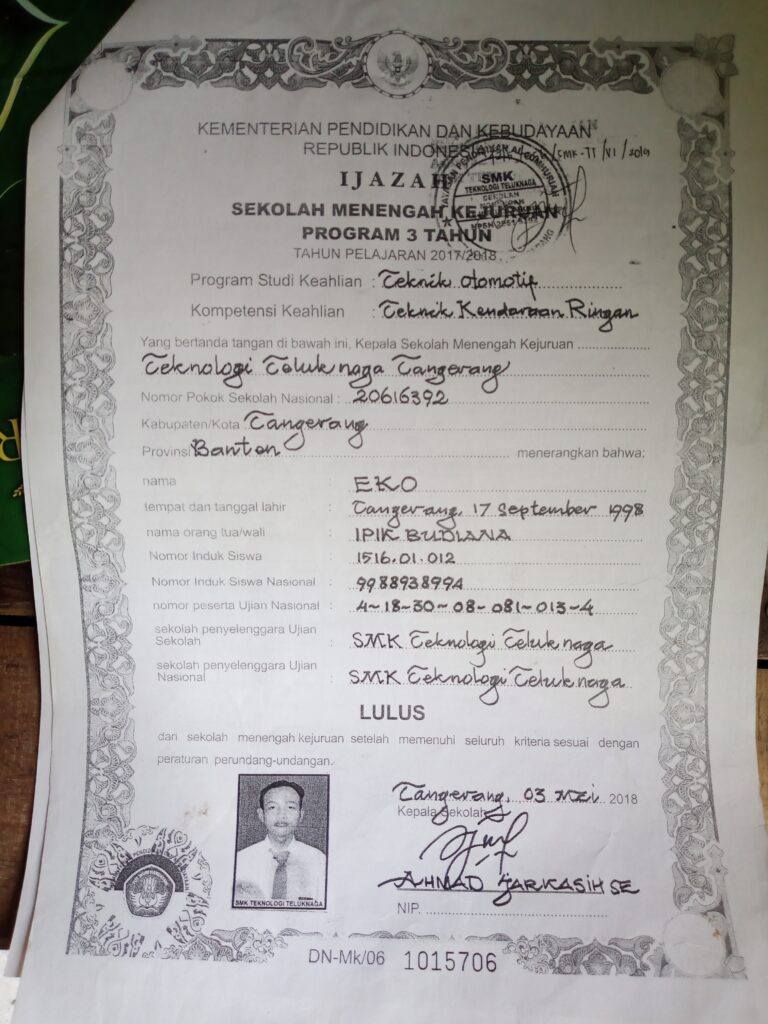 KEMENTERIAN PENDIDIKAN DAN KEBUDAYAAN
REPUBLIK INDONESIA
/SMK-TT/VI/2019
IJAZAH
SMK
TEKNOLOGI TELUKNAGA
SEKOLAH MENENGAH KEJURUAN
PROGRAM 3 TAHUN
TAHUN PELAJARAN 2017/2018
Program Studi Keahlian : Teknik Otomotif
Kompetensi Keahlian : Teknik Kendaraan Ringan
Yang bertanda tangan di bawah ini, Kepala Sekolah Menengah Kejuruan
Teknologi Teluknaga Tangerang
Nomor Pokok Sekolah Nasional : 20616392
Kabupaten/Kota Tangerang
Provinsi Banten menerangkan bahwa:
nama : EKO
tempat dan tanggal lahir : Tangerang, 17 September 1998
nama orang tua/wali : IPIK BUDIANA
Nomor Induk Siswa : 1516.01.012
Nomor Induk Siswa Nasional : 9988938994
nomor peserta Ujian Nasional : 4-18-30-08-081-013-4
sekolah penyelenggara Ujian
Sekolah : SMK Teknologi Teluknaga
sekolah penyelenggara Ujian
Nasional : SMK Teknologi Teluknaga
LULUS
dari sekolah menengah kejuruan setelah memenuhi seluruh kriteria sesuai dengan
peraturan perundang-undangan.
Tangerang, 03 Mei 2018
Kepala Sekolah,
AHMAD JARKASIH SE
NIP.
SMK TEKNOLOGI TELUKNAGA
DN-Mk/06 1015706